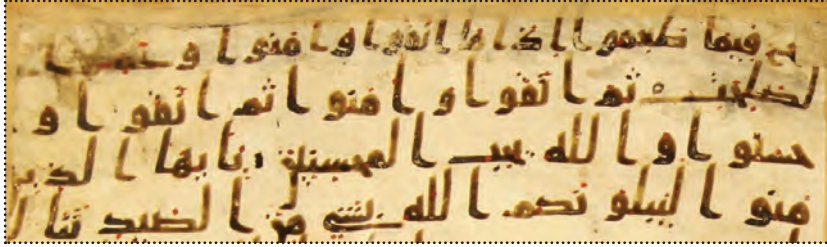 ح فيما طعموا اذا ما اتقوا وامنوا وعملوا ا
لصلحت ثم اتقوا وامنوا ثم اتقوا وا
حسنوا والله يحب المحسنين يايها الذين
منوا ليبلونكم الله بشى من الصيد تنا